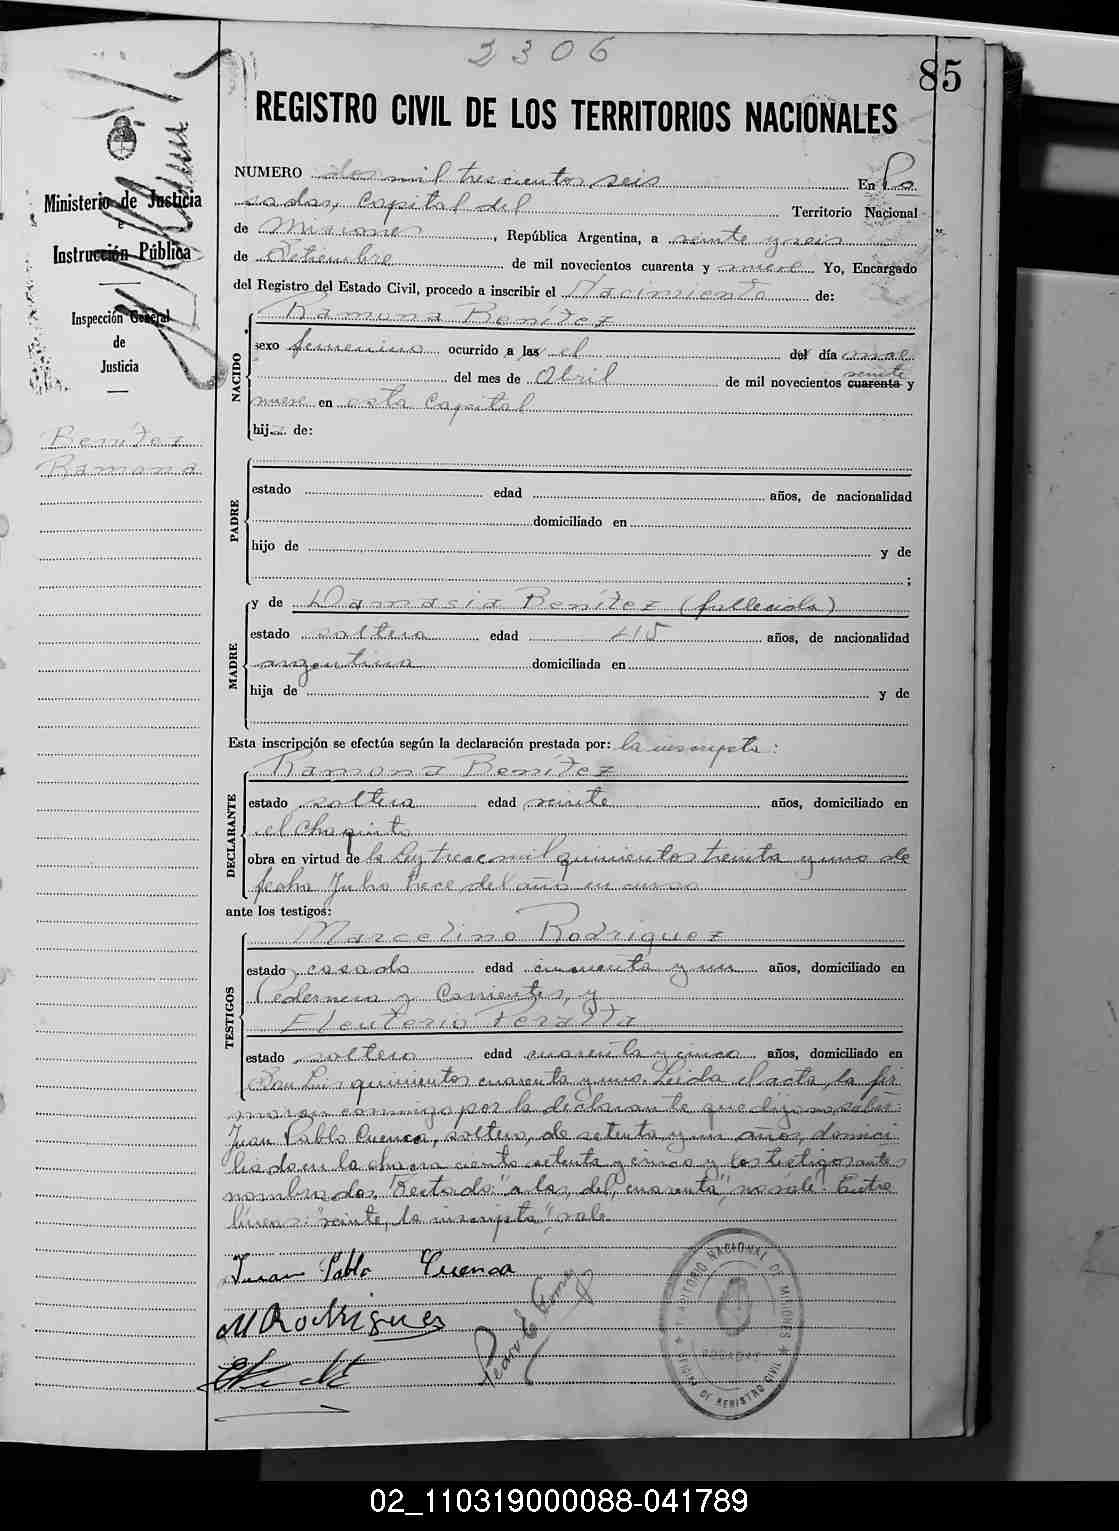 2306
85
REGISTRO CIVIL DE LOS TERRITORIOS NACIONALES
Ministerio de Justicia
e
Instrucción Pública
Inspección General
de
Justicia
Benítez
Ramona
NUMERO dos mil trescientos seis En Po
sadas, Capital del Territorio Nacional
de Misiones, República Argentina, a veinte y seis
de Setiembre de mil novecientos cuarenta y nueve Yo, Encargado
del Registro del Estado Civil, procedo a inscribir el Nacimiento de:
NACIDO
Ramona Benítez
sexo femenino ocurrido a las el del día nue
veinte
del mes de Abril de mil novecientos cuarenta y
nueve en esta Capital
hija de:
PADRE
estado edad años, de nacionalidad
domiciliado en
hijo de y de
;
MADRE
y de Damasia Benítez (fallecida)
estado soltera edad 45 años, de nacionalidad
argentina domiciliada en
hija de y de
Esta inscripción se efectúa según la declaración prestada por: la inscripta:
DECLARANTE
Ramona Benítez
estado soltera edad veinte años, domiciliado en
el Chaquito
obra en virtud de la Ley trece mil quinientos treinta y uno de
fecha Julio trece del año en curso
ante los testigos:
TESTIGOS
Marcelino Rodriguez
estado casado edad cincuenta y un años, domiciliado en
Pedernera y Corrientes, y
Eleuterio Peralta
estado soltero edad cuarenta y cinco años, domiciliado en
San Luis quinientos cuarenta y uno. Leida el acta, la fir
maron conmigo por la declarante que dijo no saber
Juan Pablo Cuenca, soltero, de setenta y un años, domici
liado en la chacra ciento setenta y cinco y los testigos antes
nombrados. Testado "a las, del, cuarenta", no vale. Entre
líneas: "veinte, la inscripta", vale.
Juan Pablo Cuenca
M Rodrigues
TERRITORIO NACIONAL DE MISIONES
POSADAS
OFICINA DE REGISTRO CIVIL
02_110319000088-041789